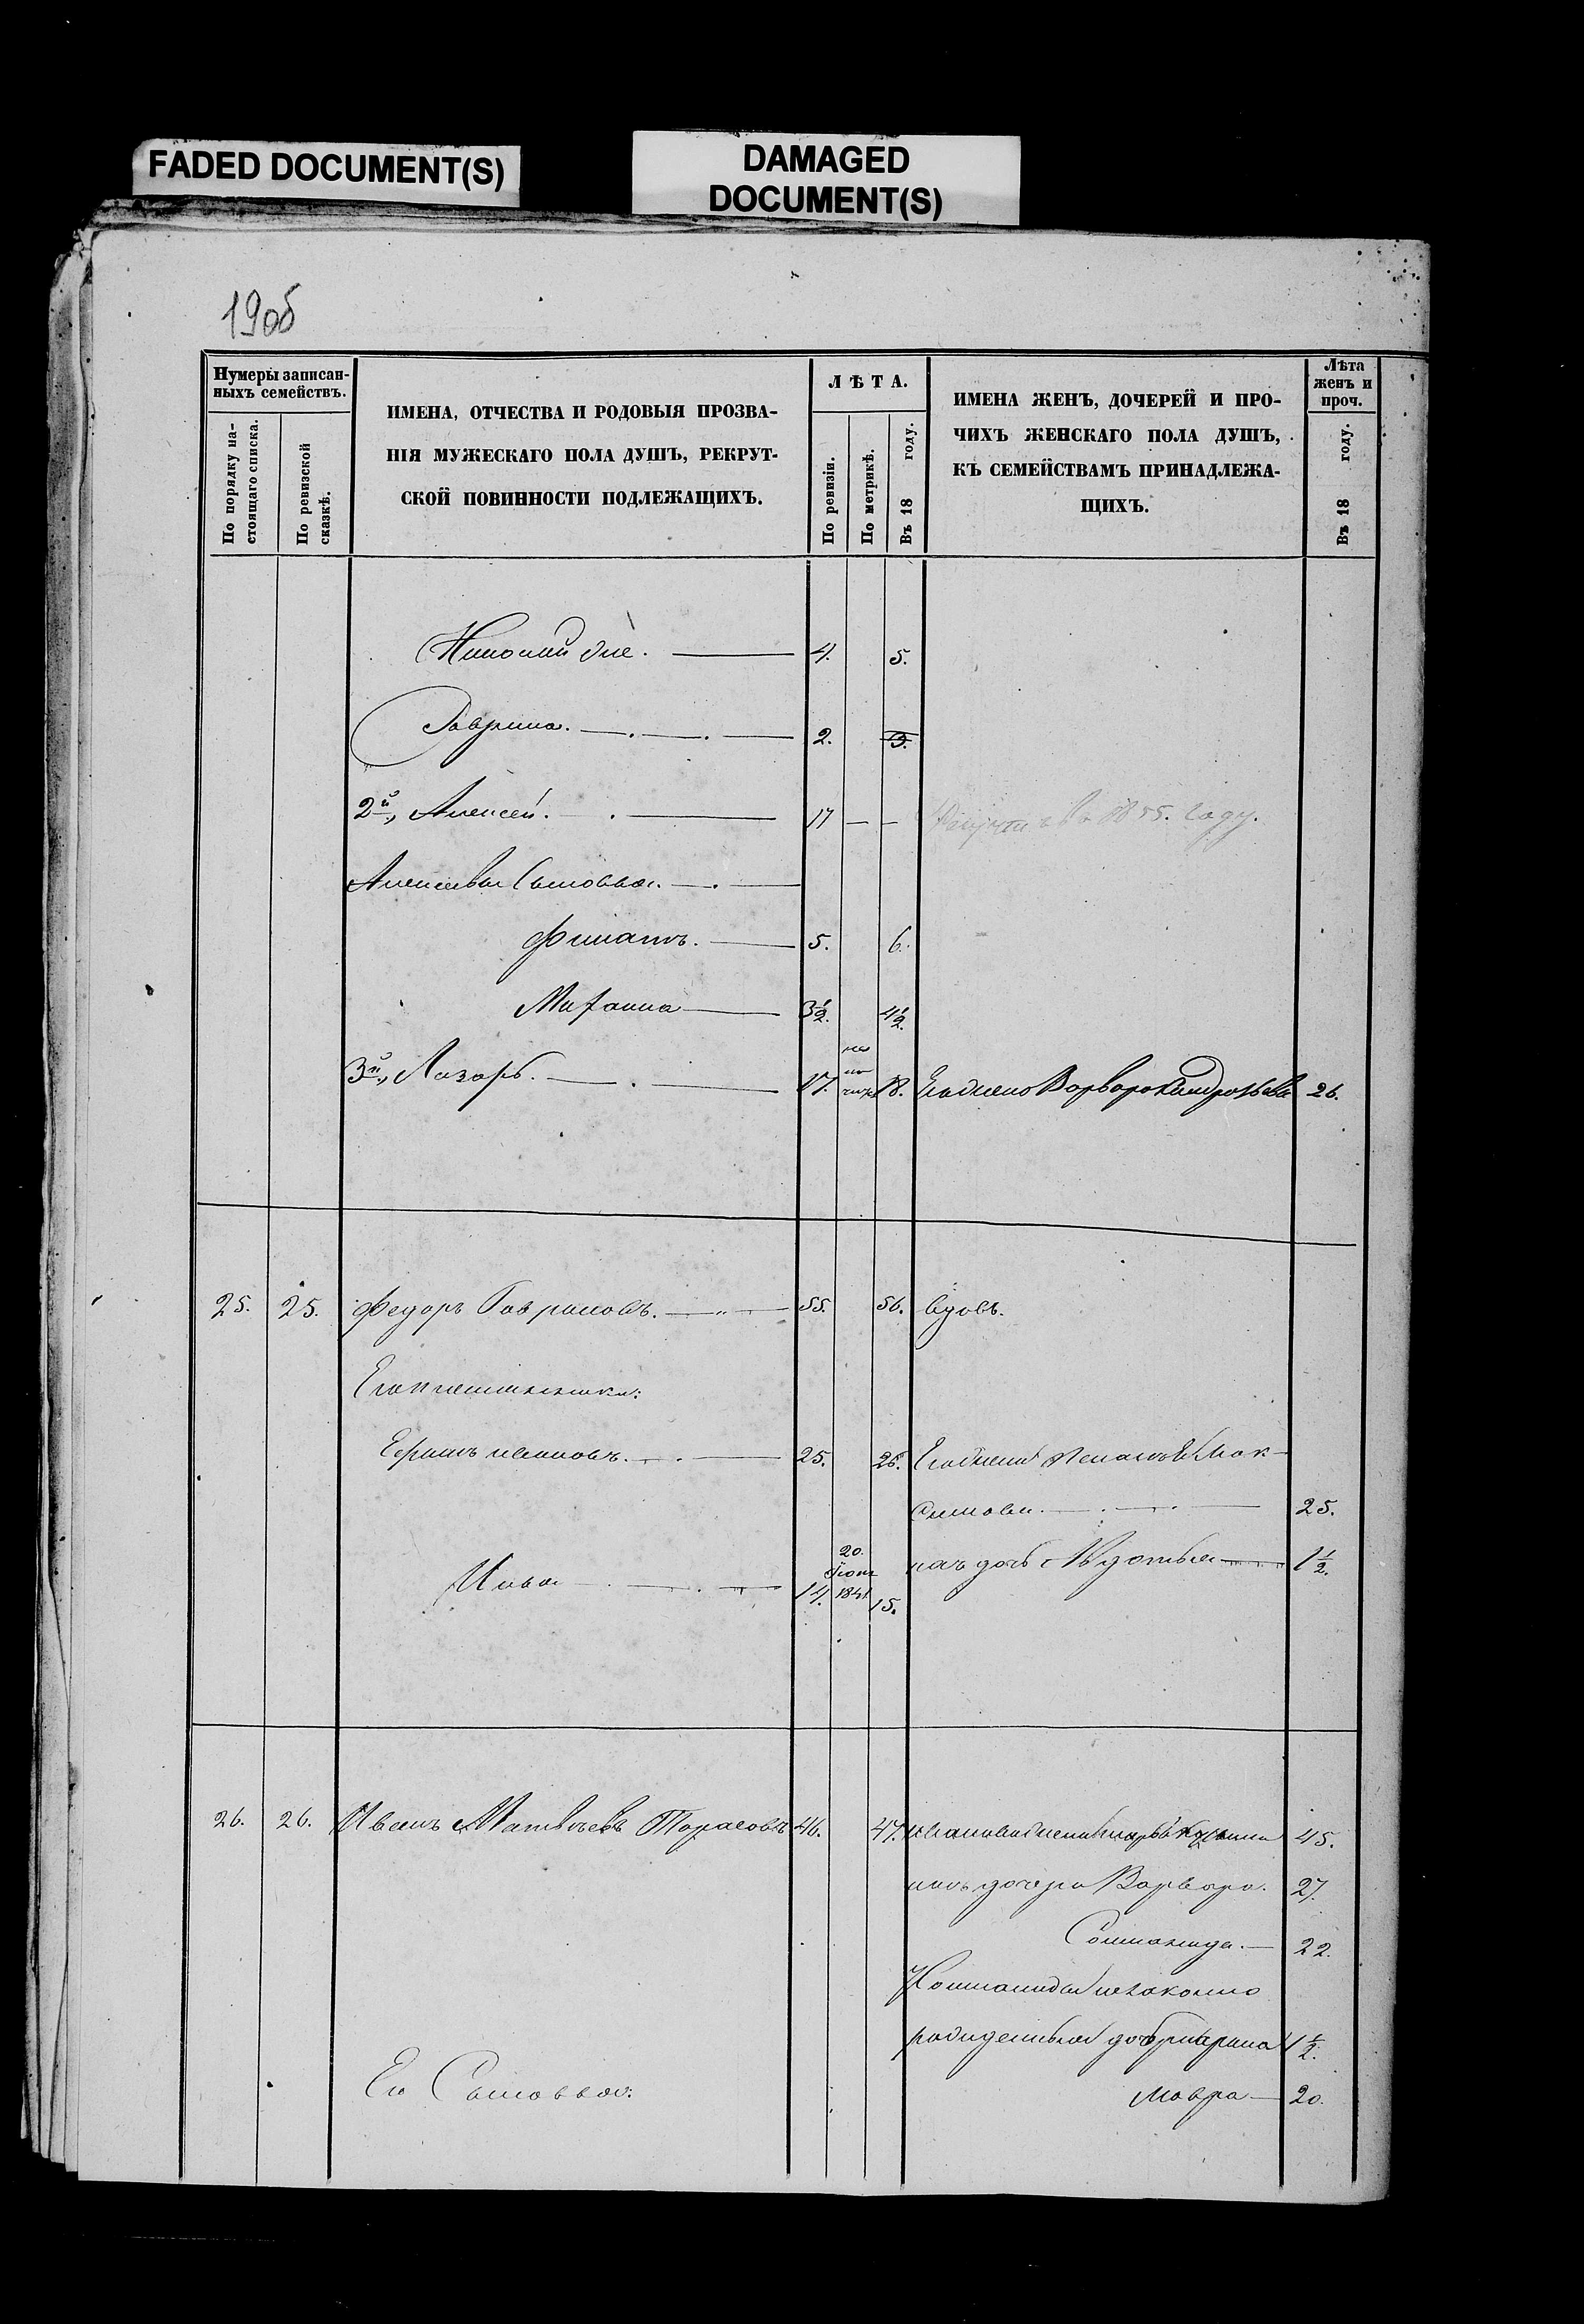 FADED DOCUMENT(S)
DAMAGED
DOCUMENT(S)
190б
Нумеры записан-
ныхъ семействъ.
По порядку на-
стоящаго списка.
По ревизской
сказкѣ.
ИМЕНА, ОТЧЕСТВА И РОДОВЫЯ ПРОЗВА-
НІЯ МУЖЕСКАГО ПОЛА ДУШЪ, РЕКРУТ-
СКОЙ ПОВИННОСТИ ПОДЛЕЖАЩИХЪ.
ЛѢТА.
По ревизіи.
По метрикѣ.
Въ 18 году.
ИМЕНА ЖЕНЪ, ДОЧЕРЕЙ И ПРО-
ЧИХЪ ЖЕНСКАГО ПОЛА ДУШЪ,
КЪ СЕМЕЙСТВАМЪ ПРИНАДЛЕЖА-
ЩИХЪ.
Лѣта
женъ и
проч.
Въ 18 году.
4. 5.
Гаврила. 2. 3.
2й, Алексей. 17 — — 1855. году.
Алексѣвы Сыновья.
Филатъ. 5. 6.
3½. 4½.
3й, Лазарь. 17. 18. Его жена Варвара 26.
25. 25. Федоръ Гавриловъ. 55. 56. вдовъ.
Его племянники:
Ефимъ Ивановъ. 25. 26. Его жена Пелагея Мак-
симова 25.
20.
Іюня
1841
ихъ дочь Авдотья 1½.
14. 15.
26. 26. Иванъ Матвѣевъ Тарасовъ 46. 47. Иванова жена Марья 45.
ихъ дочери Варвара. 27.
Соломонида. 22.
У Соломониды незаконно
рожденная дочь Марина 1½.
Мавра 20.
Его Сыновья: